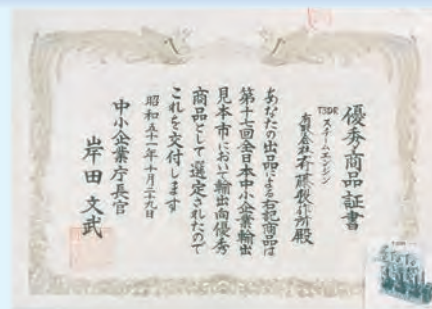 優秀商品証書
T3DR
スチームエンジン
有限会社斉藤製作所殿
あなたの出品による右記商品は
第十七回全日本中小企業輸出
見本市において輸出向優秀
商品として選定されたので
これを交付します
昭和五十一年十月二十九日
中小企業庁長官
岸田文武